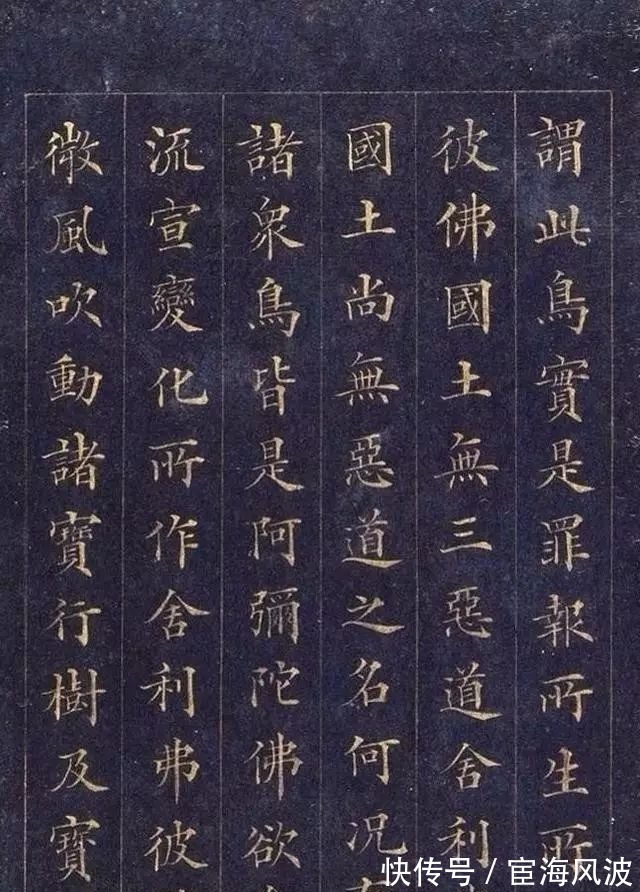 謂此鳥實是罪報所生所
彼佛國土無三惡道舍利
國土尚無惡道之名何況
諸衆鳥皆是阿彌陀佛欲
流宣變化所作舍利弗彼
微風吹動諸寶行樹及寶
快传号/宦海风波